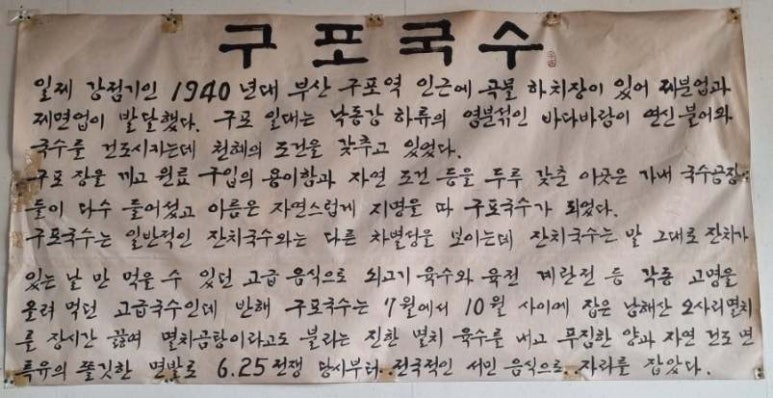 구포국수
일제 강점기인 1940년대 부산 구포역 인근에 곡물 하치장이 있어 제분업과
제면업이 발달했다. 구포 일대는 낙동강 하류의 염분섞인 바다바람이 연신 불어와
국수를 건조시키는데 천혜의 조건을 갖추고 있었다.
구포 장을 끼고 원료 구입의 용이함과 자연 조건 등을 두루 갖춘 이곳은 가내 국수공장
들이 다수 들어섰고 이름은 자연스럽게 지명을 따 구포국수가 되었다.
구포국수는 일반적인 잔치국수와는 다른 차별성을 보이는데 잔치국수는 말 그대로 잔치가
있는 날 만 먹을 수 있던 고급 음식으로 쇠고기 육수와 육전 계란전 등 각종 고명을
올려 먹던 고급국수인데 반해 구포국수는 7월에서 10월 사이에 잡은 남해산 오사리멸치
를 장시간 끓여 멸치곰탕이라고도 불리는 진한 멸치 육수를 내고 푸짐한 양과 자연 건조 면
특유의 쫄깃한 면발로 6.25 전쟁 당시부터 전국적인 서민 음식으로 자리를 잡았다.